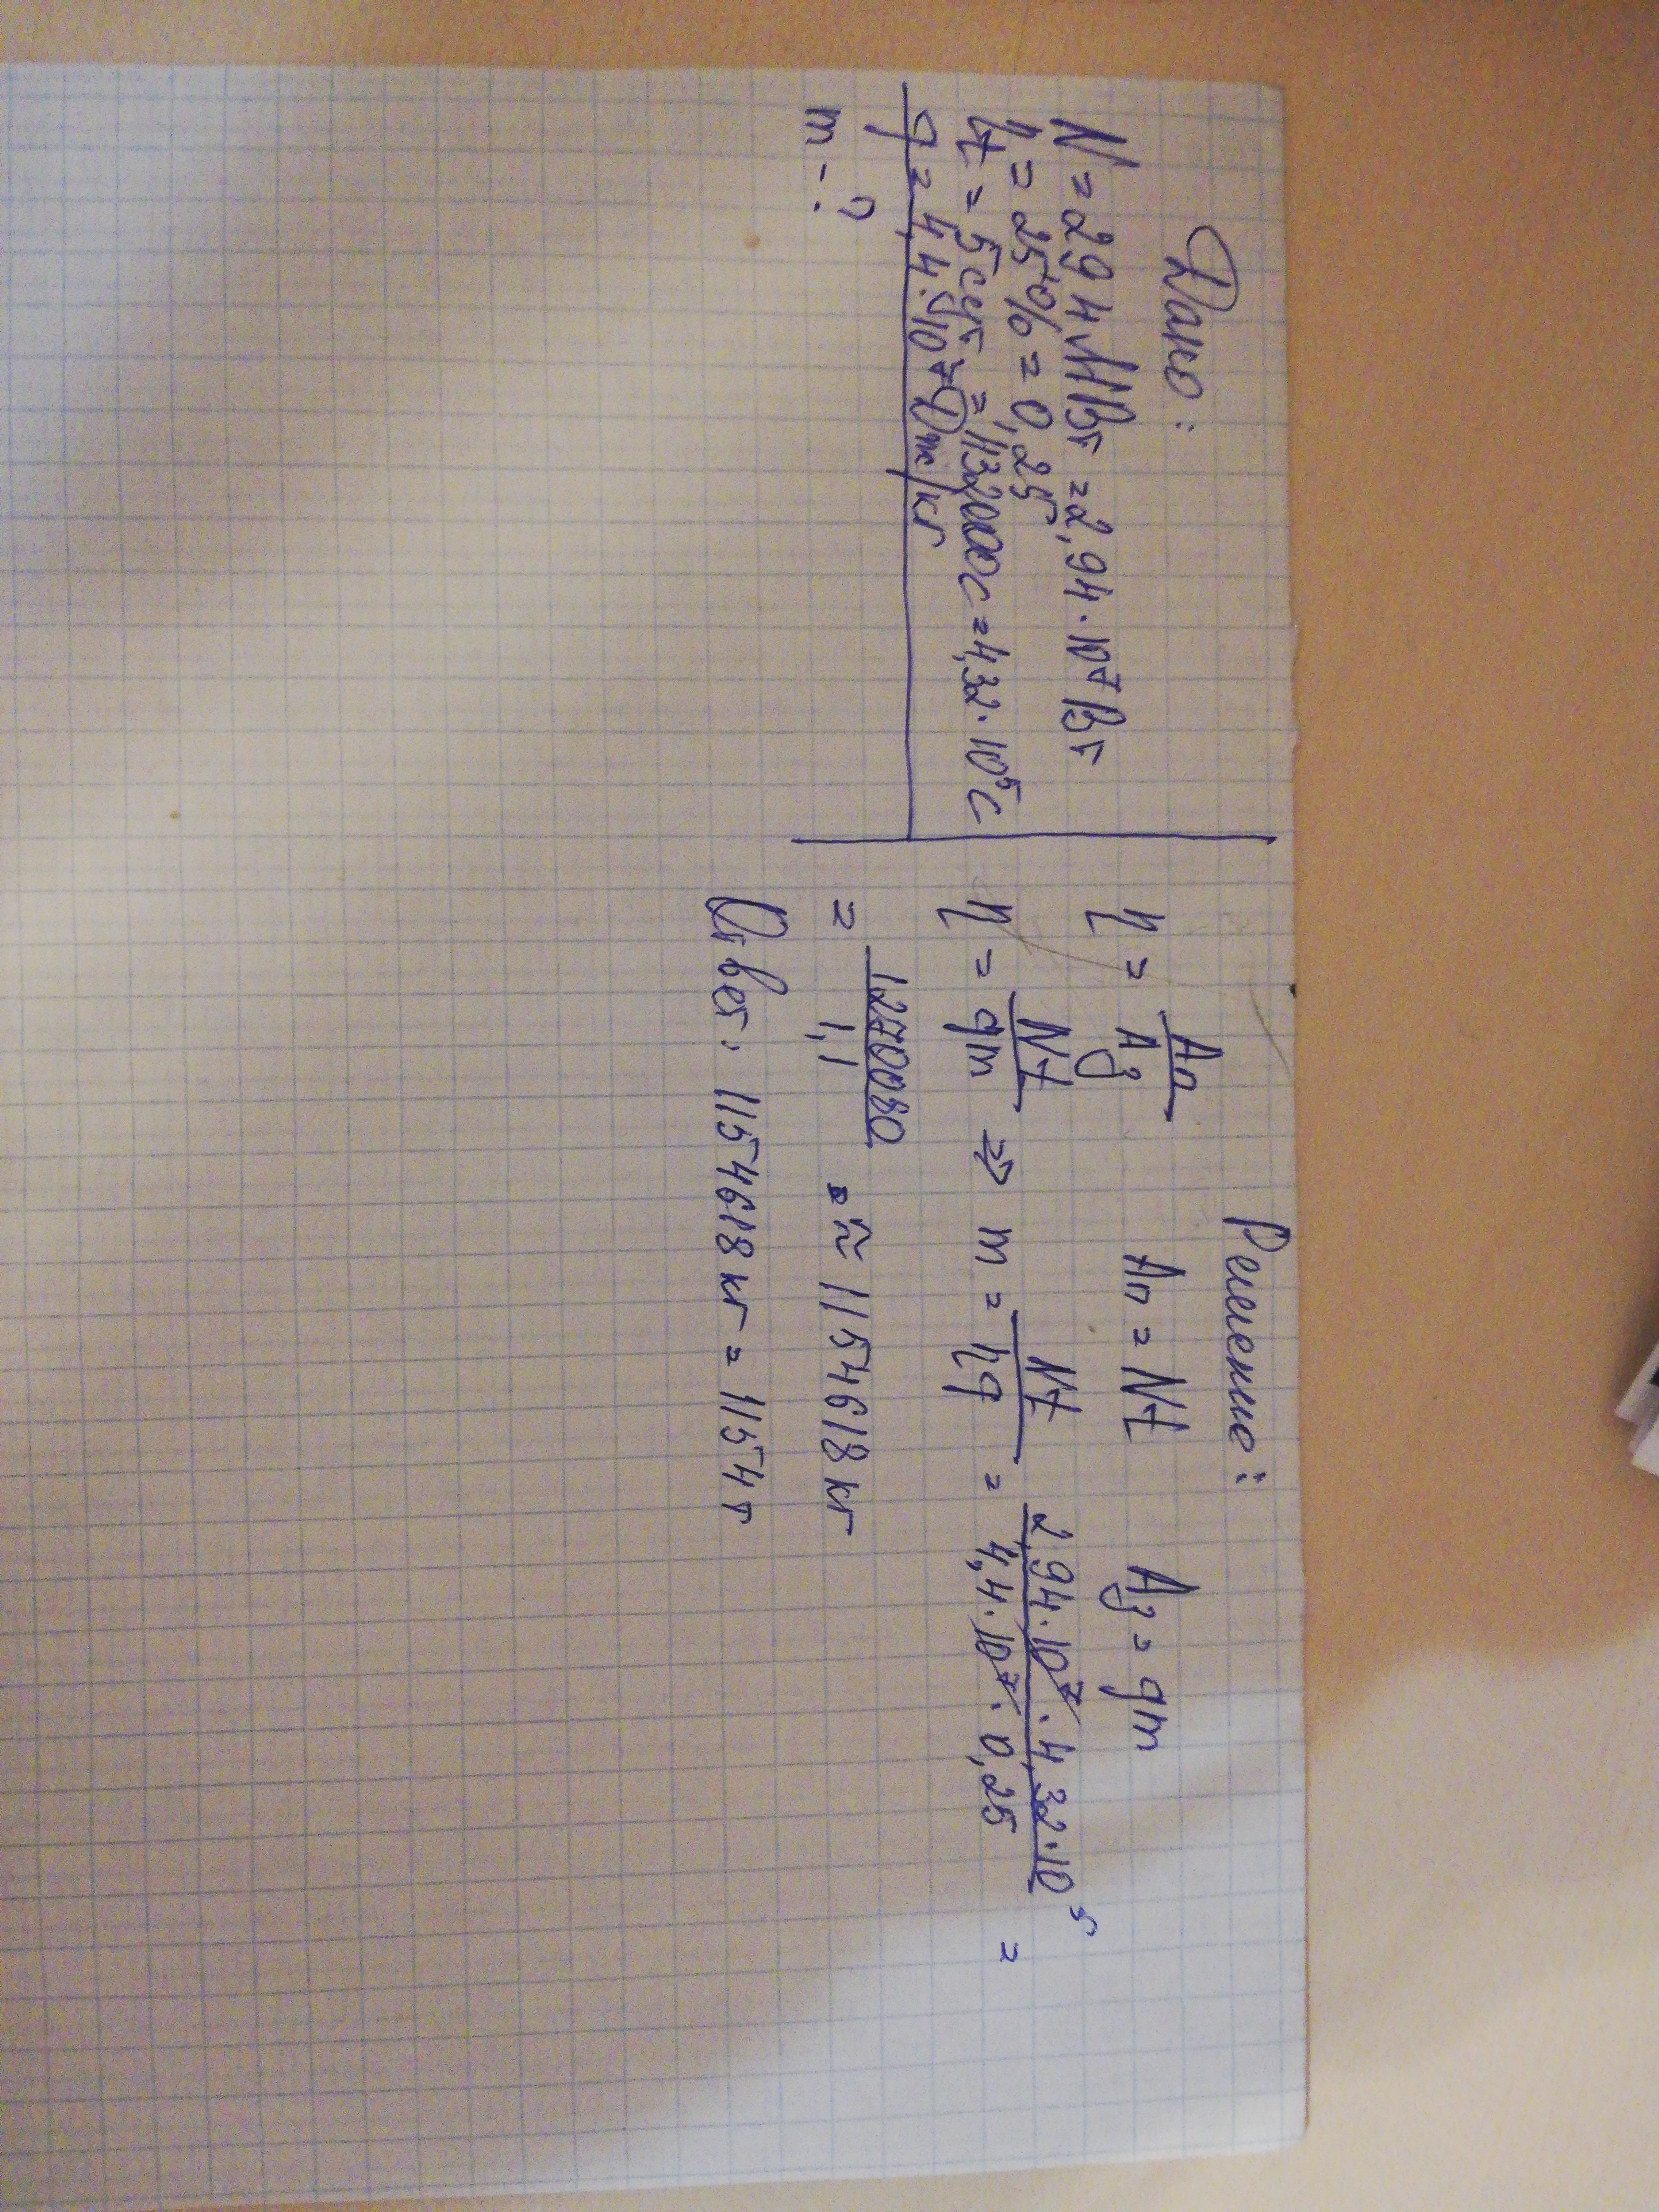 Дано:
N = 29,4 МВт = 2,94 · 10⁷ Вт
η = 25% = 0,25
t = 5 сут = 432000 с = 4,32 · 10⁵ с
q = 4,4 · 10⁷ Дж/кг
m - ?
Решение:
η = Aп/Aз Aп = Nt Aз = qm
η = Nt/qm ⇒ m = Nt/ηq = 2,94 · 10⁷ · 4,32 · 10⁵ / 4,4 · 10⁷ · 0,25 =
= 1270080/1,1 ≈ 1154618 кг
Ответ: 1154618 кг = 1154 т